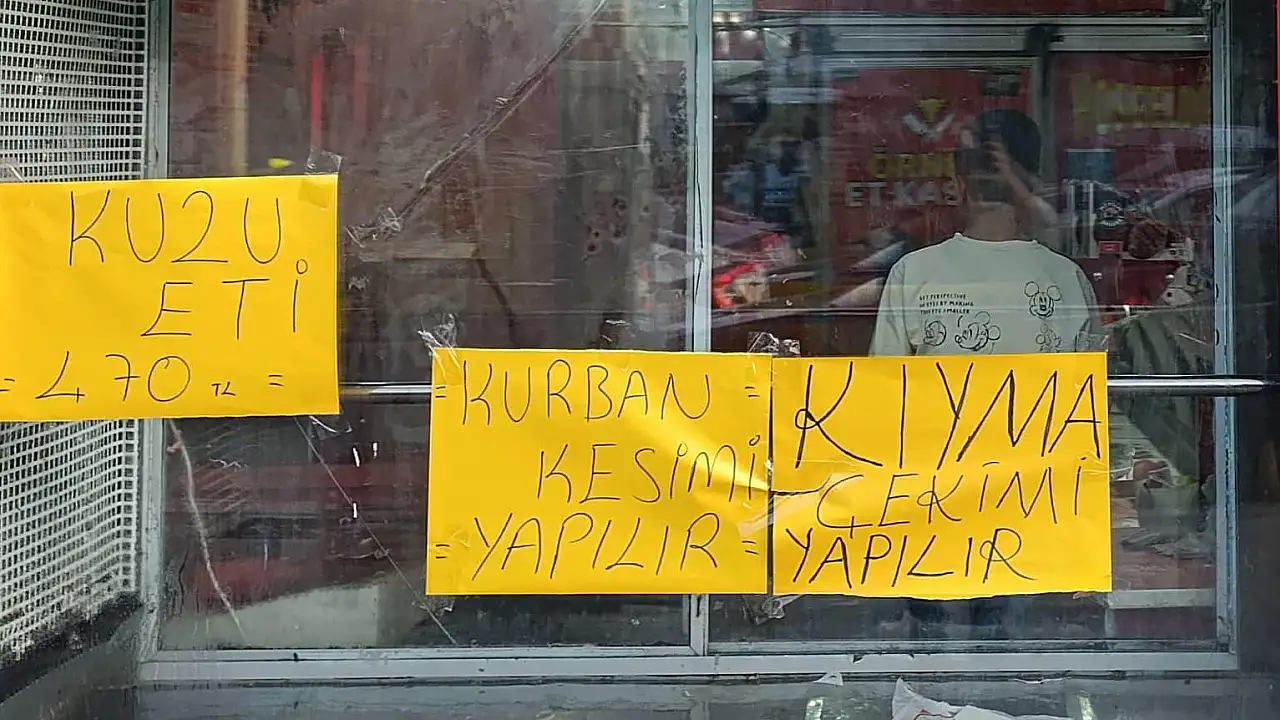 KUZU
ETİ
= 470 TL =
= KURBAN =
KESİMİ
= YAPILIR =
KIYMA
ÇEKİMİ
YAPILIR
ET.KAS
GET PERSPECTIVE